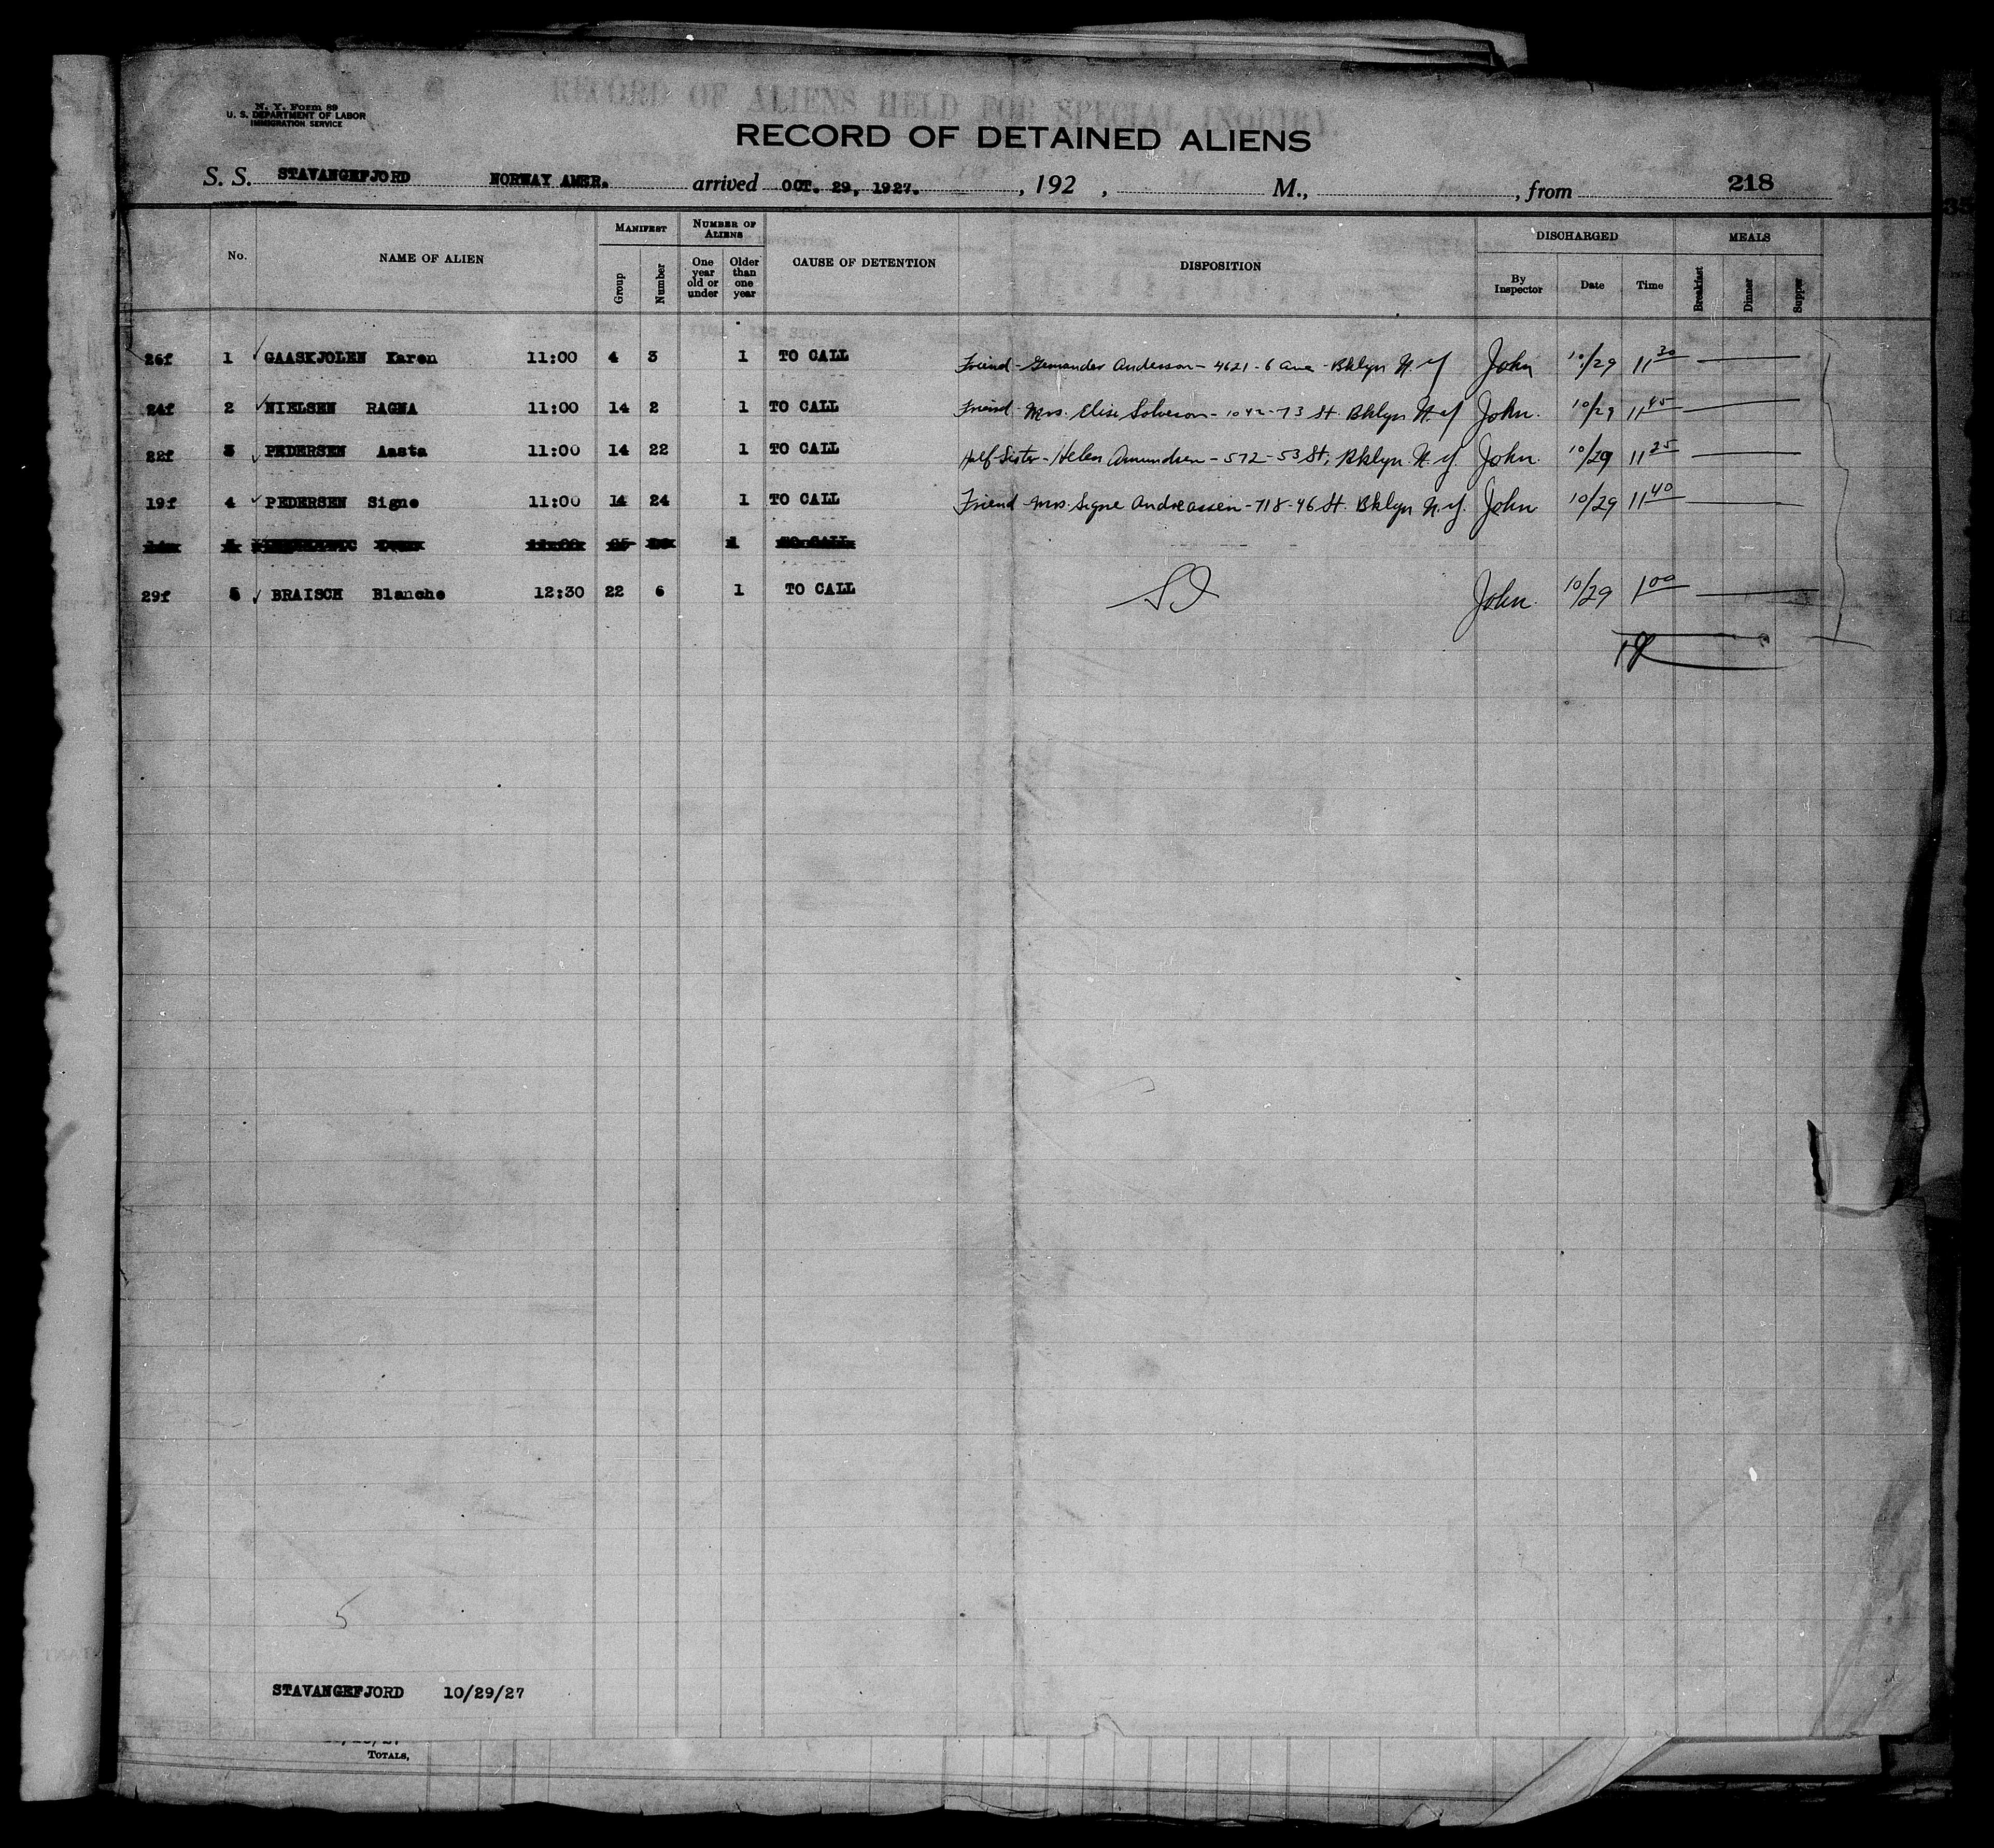 RECORD OF ALIENS HELD FOR SPECIAL INQUIRY.
N. Y. Form 89
U. S. DEPARTMENT OF LABOR
IMMIGRATION SERVICE
RECORD OF DETAINED ALIENS
S. S. STAVANGEFJORD NORWAY AMER. arrived OCT. 29, 1927. , 192 , M., , from 218
No. NAME OF ALIEN MANIFEST Group Number NUMBER OF ALIENS One year old or under Older than one year CAUSE OF DETENTION DISPOSITION DISCHARGED By Inspector Date Time MEALS Breakfast Dinner Supper
26f 1 GAASKJOLEN Karen 11:00 4 3 1 TO CALL Friend - Anderson - 4621 - 6 Ave - Bklyn N.Y John 10/29 11 30
24f 2 NIELSEN RAGNA 11:00 14 2 1 TO CALL Friend - Mrs. Elise Solveson - 1042 - 73 St. Bklyn N.Y John. 10/29 11 45
22f 3 PEDERSEN Aasta 11:00 14 22 1 TO CALL Half-Sister - Helen Amundsen - 572 - 53 St, Bklyn. N.Y. John. 10/29 11 25
19f 4 PEDERSEN Signe 11:00 14 24 1 TO CALL Friend - Mrs. Signe Andreassen - 718 - 46 St. Bklyn N.Y. John 10/29 11 40
11:00 1 TO CALL
29f 5 BRAISCH Blanche 12:30 22 6 1 TO CALL SI John. 10/29 1 00
5
STAVANGEFJORD 10/29/27
TOTALS,